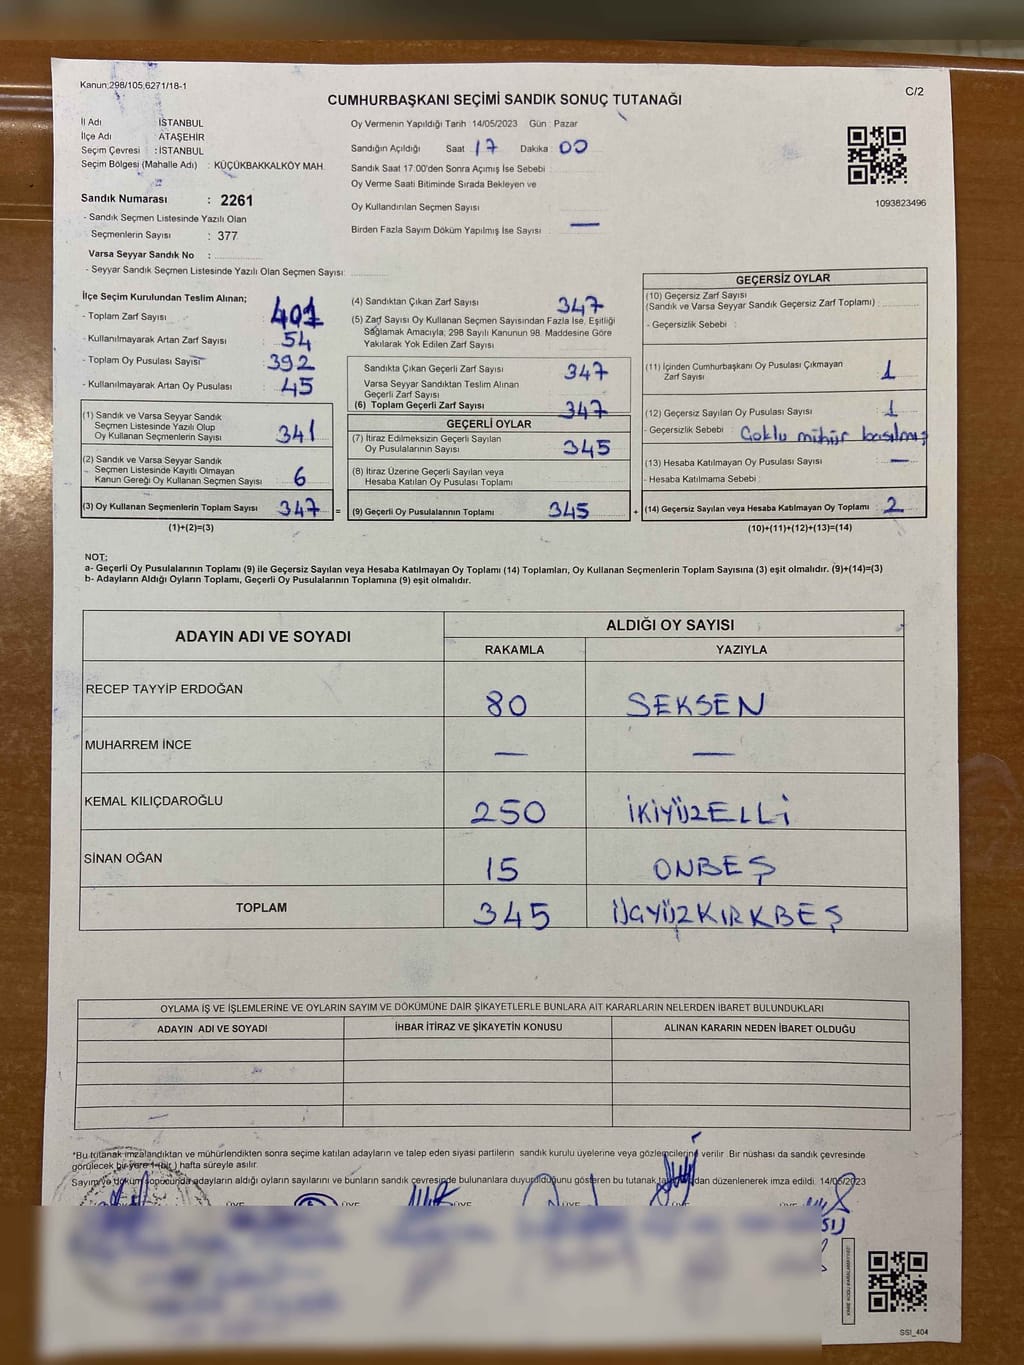 Kanun;298/105,6271/18-1
C/2
CUMHURBAŞKANI SEÇİMİ SANDIK SONUÇ TUTANAĞI
İl Adı : İSTANBUL
İlçe Adı : ATAŞEHİR
Seçim Çevresi : İSTANBUL
Seçim Bölgesi (Mahalle Adı) : KÜÇÜKBAKKALKÖY MAH.
Sandık Numarası : 2261
- Sandık Seçmen Listesinde Yazılı Olan
Seçmenlerin Sayısı : 377
Varsa Seyyar Sandık No :
- Seyyar Sandık Seçmen Listesinde Yazılı Olan Seçmen Sayısı:
Oy Vermenin Yapıldığı Tarih : 14/05/2023 Gün : Pazar
Sandığın Açıldığı Saat 17 Dakika : 00
Sandık Saat 17:00'den Sonra Açımış İse Sebebi :
Oy Verme Saati Bitiminde Sırada Bekleyen ve
Oy Kullandırılan Seçmen Sayısı
Birden Fazla Sayım Döküm Yapılmış İse Sayısı : —
1093823496
İlçe Seçim Kurulundan Teslim Alınan;
- Toplam Zarf Sayısı : 401
- Kullanılmayarak Artan Zarf Sayısı : 54
- Toplam Oy Pusulası Sayısı : 392
- Kullanılmayarak Artan Oy Pusulası : 45
(1) Sandık ve Varsa Seyyar Sandık
Seçmen Listesinde Yazılı Olup
Oy Kullanan Seçmenlerin Sayısı : 341
(2) Sandık ve Varsa Seyyar Sandık
Seçmen Listesinde Kayıtlı Olmayan
Kanun Gereği Oy Kullanan Seçmen Sayısı : 6
(3) Oy Kullanan Seçmenlerin Toplam Sayısı : 347 =
(1)+(2)=(3)
(4) Sandıktan Çıkan Zarf Sayısı : 347
(5) Zarf Sayısı Oy Kullanan Seçmen Sayısından Fazla İse, Eşitliği
Sağlamak Amacıyla; 298 Sayılı Kanunun 98. Maddesine Göre
Yakılarak Yok Edilen Zarf Sayısı :
Sandıkta Çıkan Geçerli Zarf Sayısı : 347
Varsa Seyyar Sandıktan Teslim Alınan
Geçerli Zarf Sayısı :
(6) Toplam Geçerli Zarf Sayısı : 347
GEÇERLİ OYLAR
(7) İtiraz Edilmeksizin Geçerli Sayılan
Oy Pusulalarının Sayısı : 345
(8) İtiraz Üzerine Geçerli Sayılan veya
Hesaba Katılan Oy Pusulası Toplamı :
(9) Geçerli Oy Pusulalarının Toplamı : 345 +
GEÇERSİZ OYLAR
(10) Geçersiz Zarf Sayısı
(Sandık ve Varsa Seyyar Sandık Geçersiz Zarf Toplamı) :
- Geçersizlik Sebebi :
(11) İçinden Cumhurbaşkanı Oy Pusulası Çıkmayan
Zarf Sayısı : 1
(12) Geçersiz Sayılan Oy Pusulası Sayısı : 1
- Geçersizlik Sebebi : Çoklu mühür basılmış
(13) Hesaba Katılmayan Oy Pusulası Sayısı : —
- Hesaba Katılmama Sebebi :
(14) Geçersiz Sayılan veya Hesaba Katılmayan Oy Toplamı : 2
(10)+(11)+(12)+(13)=(14)
NOT;
a- Geçerli Oy Pusulalarının Toplamı (9) ile Geçersiz Sayılan veya Hesaba Katılmayan Oy Toplamı (14) Toplamları, Oy Kullanan Seçmenlerin Toplam Sayısına (3) eşit olmalıdır. (9)+(14)=(3)
b- Adayların Aldığı Oyların Toplamı, Geçerli Oy Pusulalarının Toplamına (9) eşit olmalıdır.
ADAYIN ADI VE SOYADI ALDIĞI OY SAYISI
RAKAMLA YAZIYLA
RECEP TAYYİP ERDOĞAN 80 SEKSEN
MUHARREM İNCE — —
KEMAL KILIÇDAROĞLU 250 İKİYÜZELLİ
SİNAN OĞAN 15 ONBEŞ
TOPLAM 345 ÜÇYÜZKIRKBEŞ
OYLAMA İŞ VE İŞLEMLERİNE VE OYLARIN SAYIM VE DÖKÜMÜNE DAİR ŞİKAYETLERLE BUNLARA AİT KARARLARIN NELERDEN İBARET BULUNDUKLARI
ADAYIN ADI VE SOYADI İHBAR İTİRAZ VE ŞİKAYETİN KONUSU ALINAN KARARIN NEDEN İBARET OLDUĞU
*Bu tutanak imzalandıktan ve mühürlendikten sonra seçime katılan adayların ve talep eden siyasi partilerin sandık kurulu üyelerine veya gözlemcilerine verilir. Bir nüshası da sandık çevresinde
görülecek bir yere 1 (bir ) hafta süreyle asılır.
Sayım ve döküm sonucunda adayların aldığı oyların sayılarını ve bunların sandık çevresinde bulunanlara duyurulduğunu gösteren bu tutanak düzenlenerek imza edildi. 14/05/2023
SSI_404